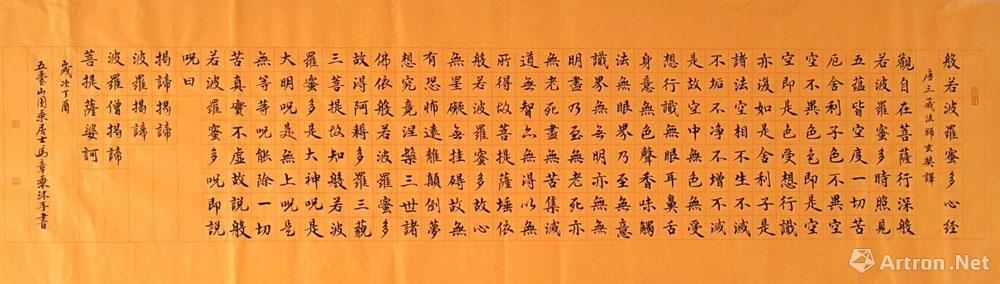 般若波羅蜜多心經
唐三藏法師玄奘譯
觀自在菩薩行深般
若波羅蜜多時照見
五蘊皆空度一切苦
厄舍利子色不異空
空不異色色即是空
空即是色受想行識
亦復如是舍利子是
諸法空相不生不滅
不垢不净不增不減
是故空中無色無受
想行識無眼耳鼻舌
身意無色聲香味觸
法無眼界乃至無意
識界無無明亦無無
明盡乃至無老死亦
無老死盡無苦集滅
道無智亦無得以無
所得故菩提薩埵依
般若波羅蜜多故心
無罣礙無挂碍故無
有恐怖遠離顛倒夢
想究竟涅槃三世諸
佛依般若波羅蜜多
故得阿耨多羅三藐
三菩提故知般若波
羅蜜多是大神呪是
大明呪是無上呪是
無等等呪能除一切
苦真實不虛故說般
若波羅蜜多呪即說
呪曰
揭諦揭諦
波羅揭諦
波羅僧揭諦
菩提薩婆訶
歲次丁酉
五臺山圓乘居士馬章乘沐手書
Artron.Net